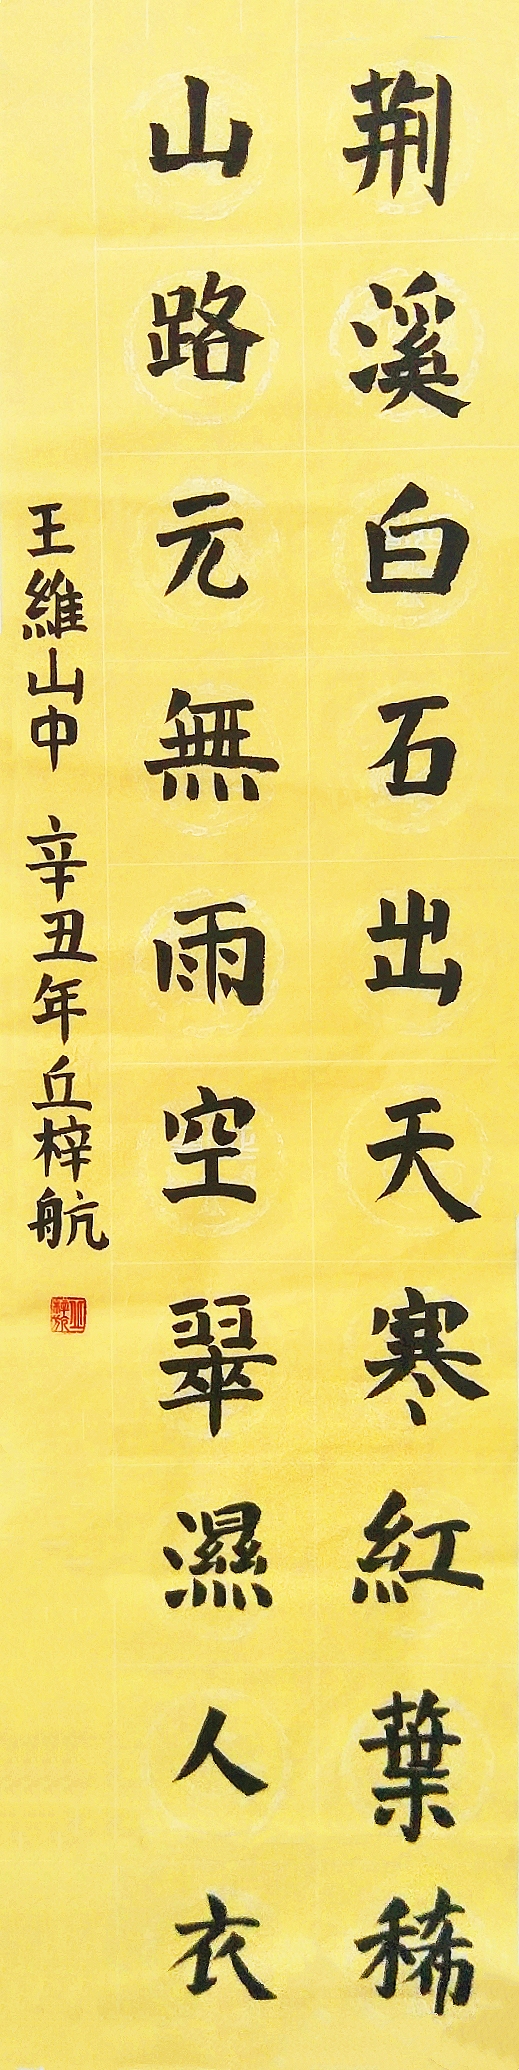 荆溪白石出天寒紅葉稀
山路元無雨空翠濕人衣
王維山中 辛丑年丘梓航